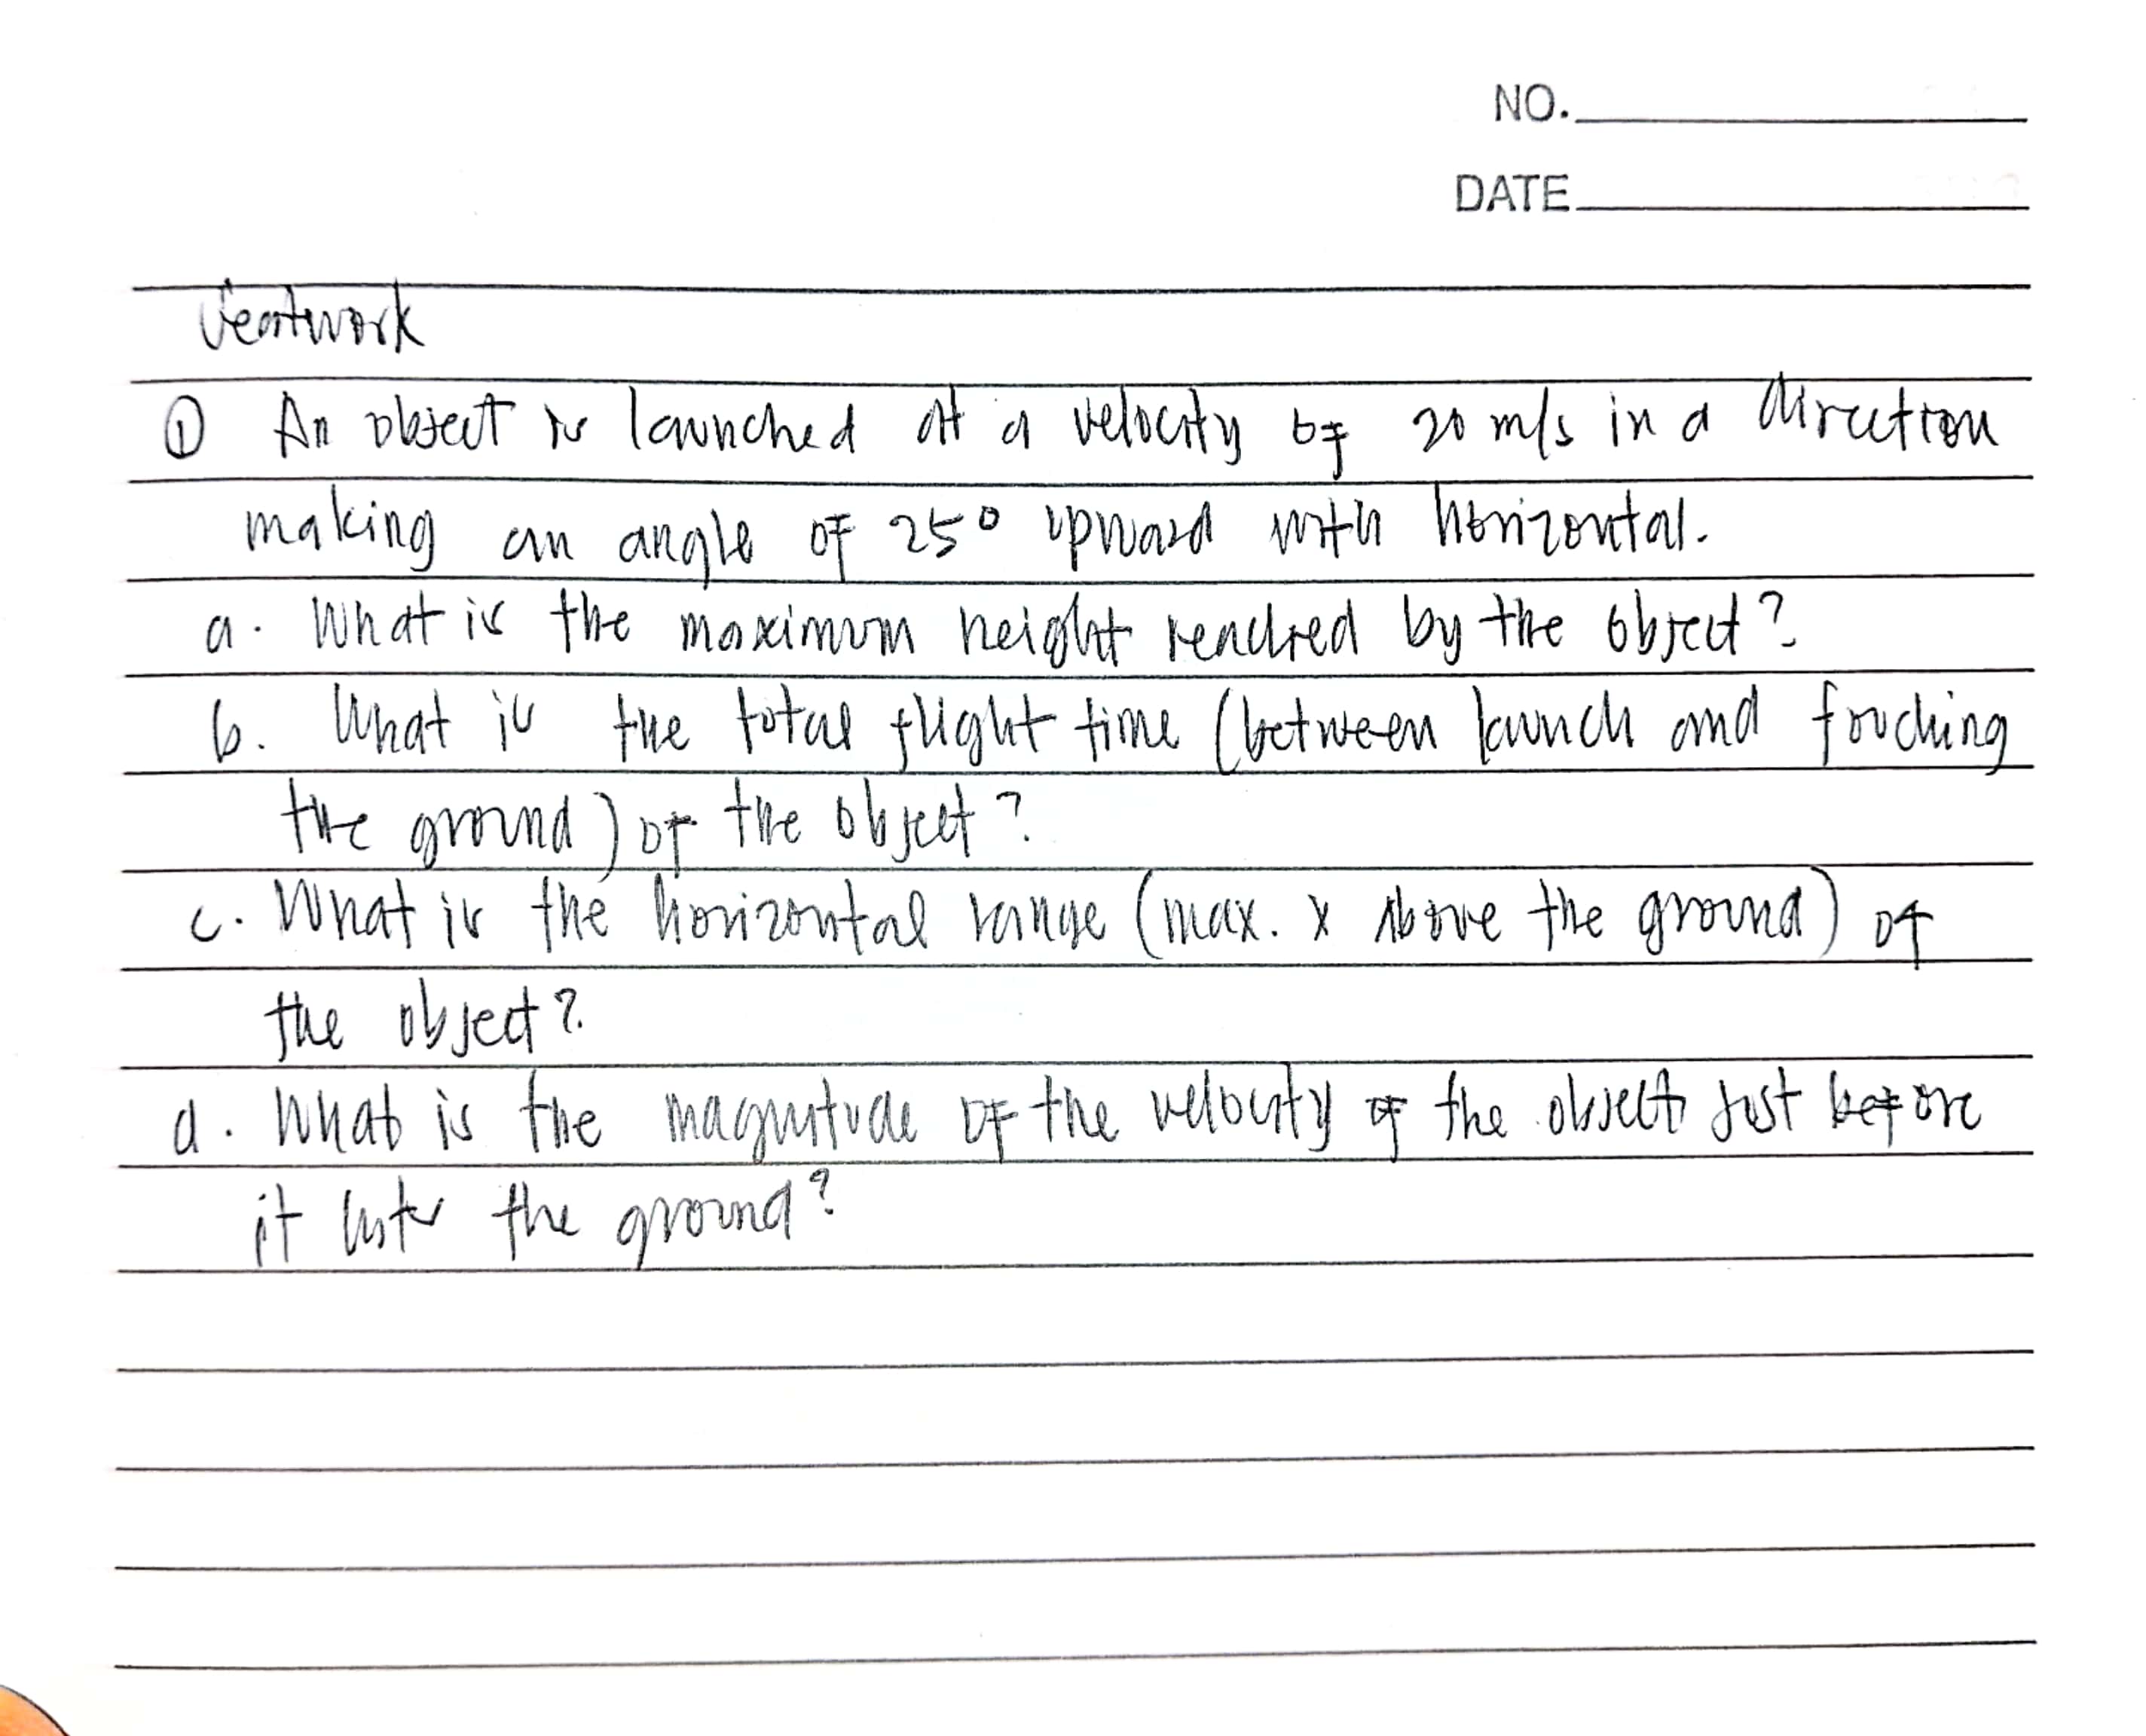 NO.
DATE
Seatwork
① An object is launched at a velocity of 20 m/s in a direction
making an angle of 25° upward with horizontal.
a. What is the maximum height reached by the object?
b. What is the total flight time (between launch and touching
the ground) of the object?
c. What is the horizontal range (max. x above the ground) of
the object?
d. What is the magnitude of the velocity of the object just before
it hits the ground?